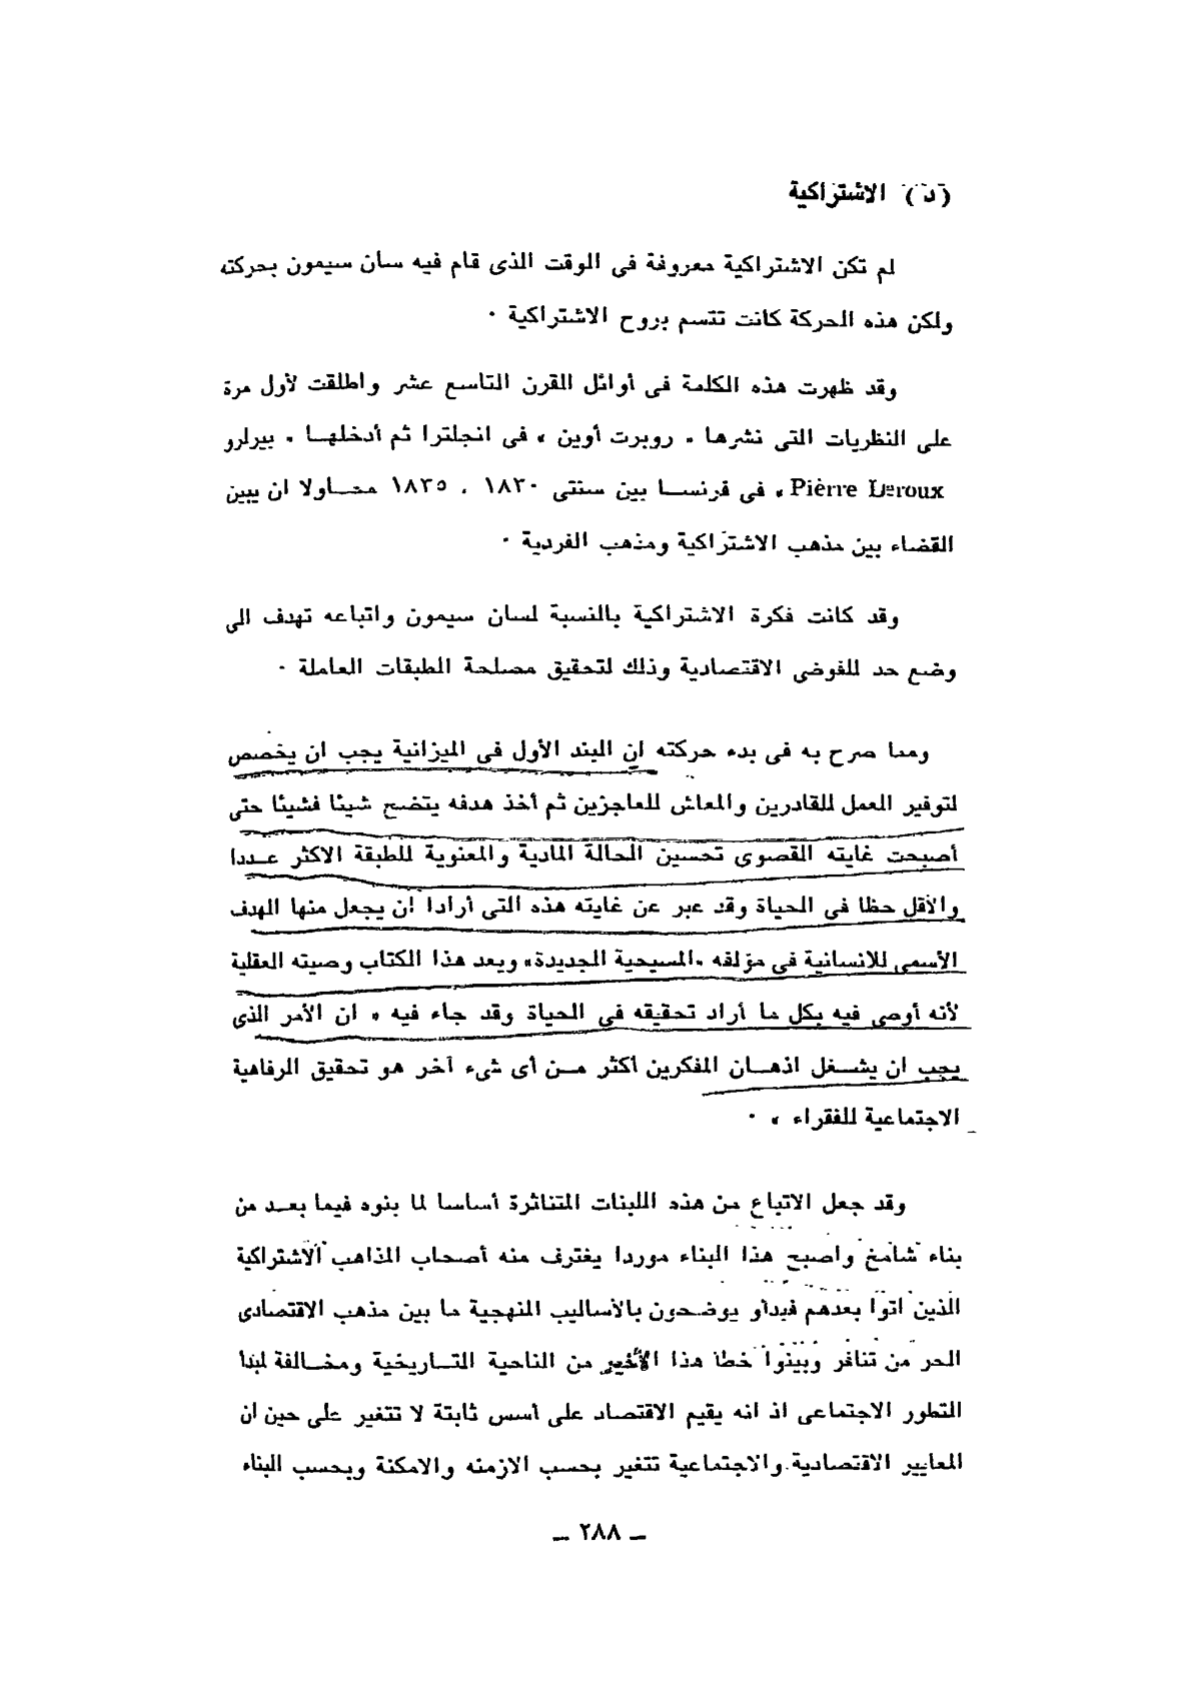 (د) الاشتراكية
لم تكن الاشتراكية معروفة فى الوقت الذى قام فيه سان سيمون بحركته
ولكن هذه الحركة كانت تتسم بروح الاشتراكية ٠
وقد ظهرت هذه الكلمة فى أوائل القرن التاسع عشر واطلقت لأول مرة
على النظريات التى نشرها « روبرت أوين » فى انجلترا ثم أدخلهـا « بيرلرو
Pièrre Leroux » فى فرنسـا بين سنتى ١٨٣٠ ، ١٨٣٥ محـاولا ان يبين
القضاء بين مذهب الاشتراكية ومذهب الفردية ٠
وقد كانت فكرة الاشتراكية بالنسبة لسان سيمون واتباعه تهدف الى
وضع حد للفوضى الاقتصادية وذلك لتحقيق مصلحة الطبقات العاملة ٠
ومما صرح به فى بدء حركته ان البند الأول فى الميزانية يجب ان يخصص
لتوفير العمل للقادرين والمعاش للعاجزين ثم أخذ هدفه يتضح شيئا فشيئا حتى
أصبحت غايته القصوى تحسين الحالة المادية والمعنوية للطبقة الاكثر عـددا
والأقل حظا فى الحياة وقد عبر عن غايته هذه التى أرادا أن يجعل منها الهدف
الأسمى للانسانية فى مؤلفه «المسيحية الجديدة» ويعد هذا الكتاب وصيته العقلية
لأنه أوصى فيه بكل ما أراد تحقيقه فى الحياة وقد جاء فيه « ان الأمر الذى
يجب ان يشـغل اذهـان المفكرين أكثر مـن أى شىء آخر هو تحقيق الرفاهية
الاجتماعية للفقراء » ٠
وقد جعل الاتباع من هذه اللبنات المتناثرة أساسا لما بنوه فيما بعـد من
بناء شامخ واصبح هذا البناء موردا يغترف منه أصحاب المذاهب الاشتراكية
الذين اتوا بعدهم فبدأو يوضحون بالأساليب المنهجية ما بين مذهب الاقتصادى
الحر من تنافر وبينوا خطأ هذا الأخير من الناحية التـاريخية ومخـالفة لمبدأ
التطور الاجتماعى اذ انه يقيم الاقتصاد على أسس ثابتة لا تتغير على حين ان
المعايير الاقتصادية والاجتماعية تتغير بحسب الازمنه والامكنة وبحسب البناء
ـ ٢٨٨ ـ